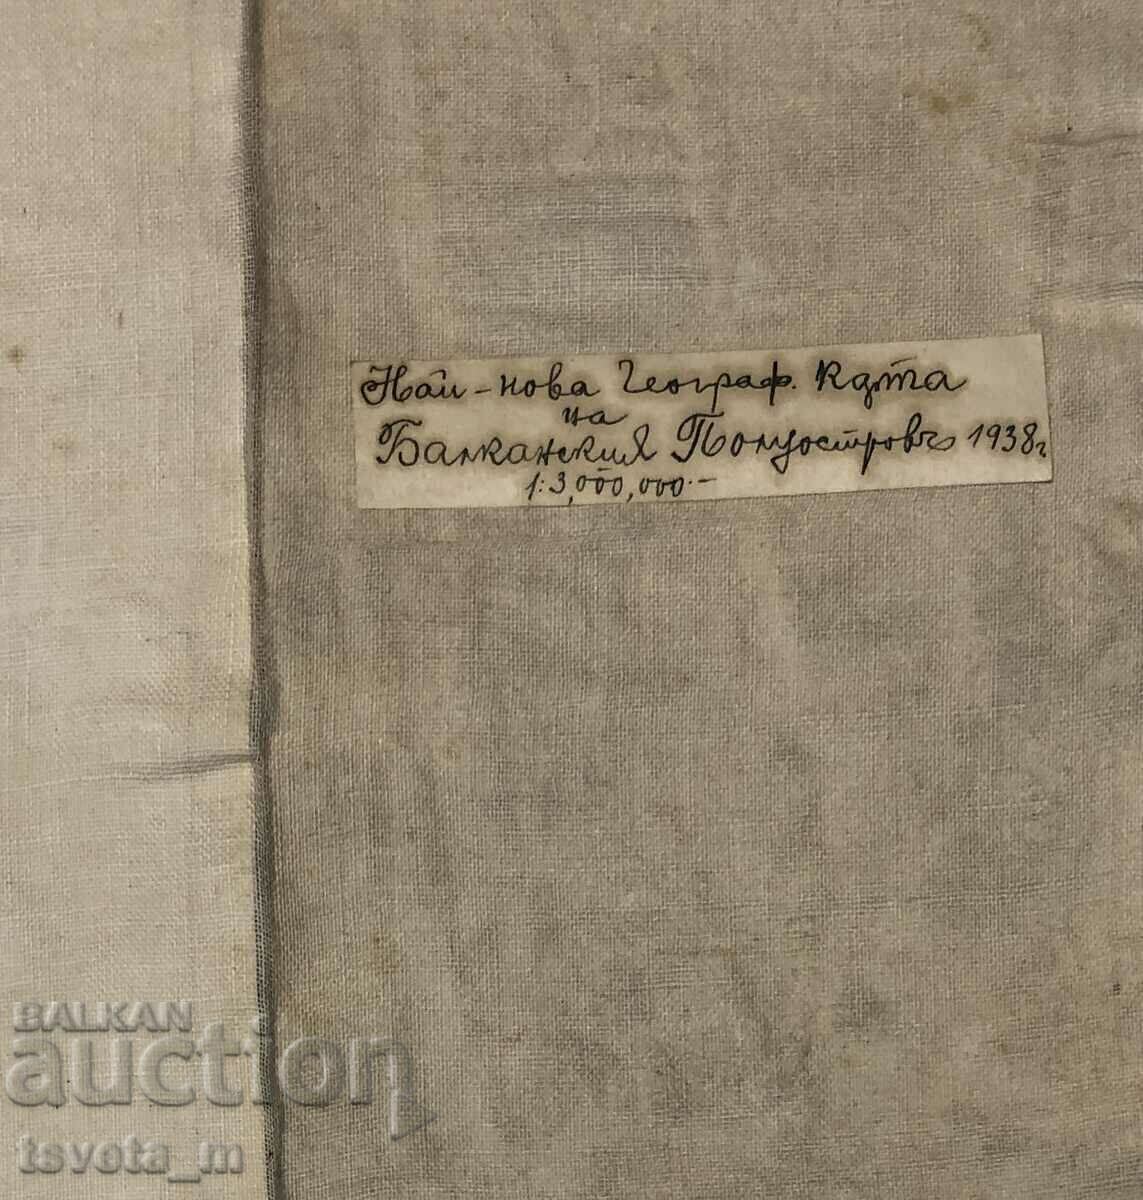 Най-нова Географ. Карта
на
Балканския Полуостровъ 1938г.
1:3,000,000.-
BALKAN
auction
tsveta_m